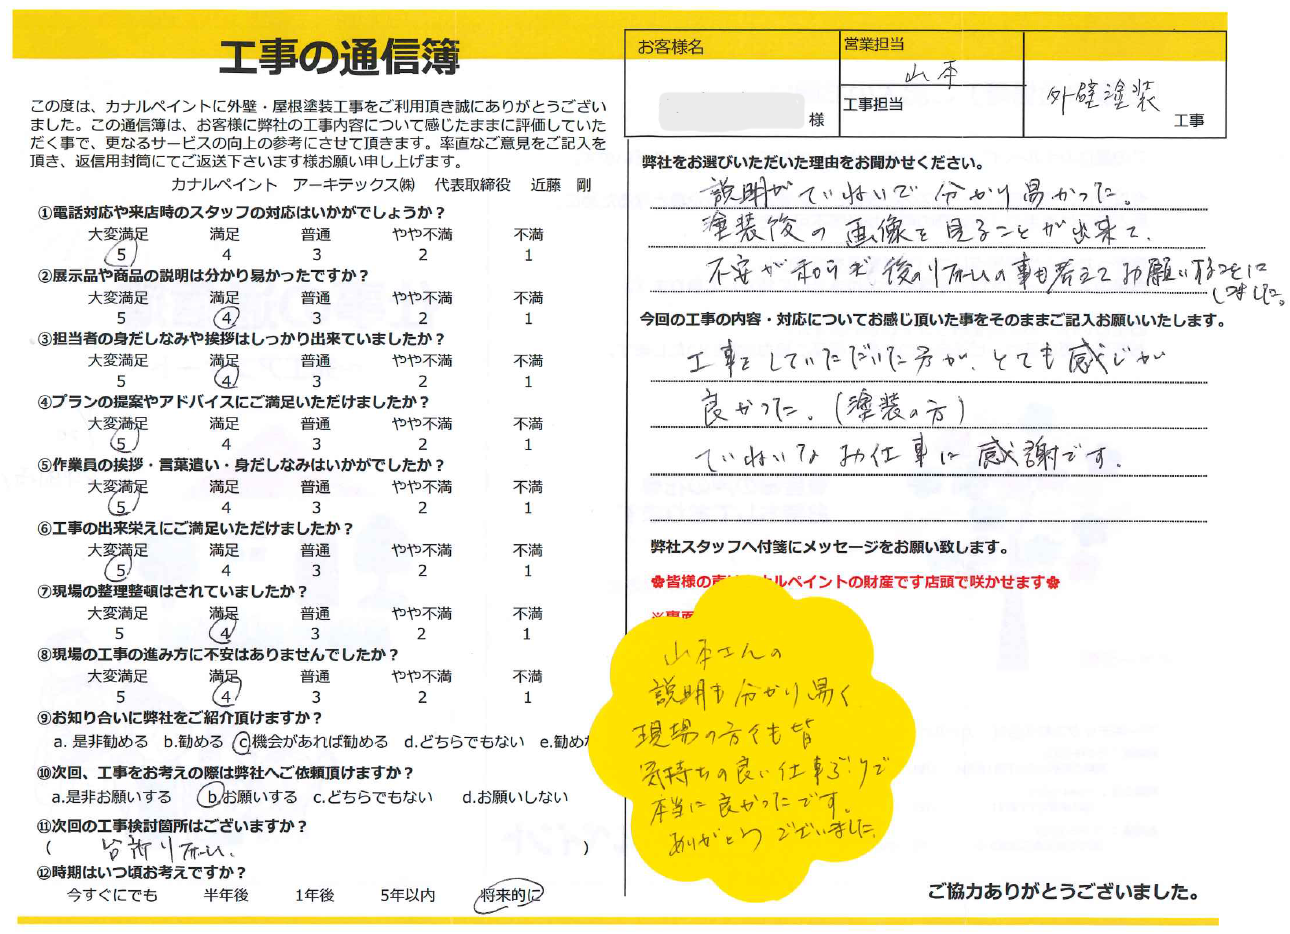 工事の通信簿
この度は、カナルペイントに外壁・屋根塗装工事をご利用頂き誠にありがとうござい
ました。この通信簿は、お客様に弊社の工事内容について感じたままに評価していた
だく事で、更なるサービスの向上の参考にさせて頂きます。率直なご意見をご記入を
頂き、返信用封筒にてご返送下さいます様お願い申し上げます。
カナルペイント アーキテックス㈱ 代表取締役 近藤 剛
①電話対応や来店時のスタッフの対応はいかがでしょうか？
大変満足 満足 普通 やや不満 不満
5 4 3 2 1
②展示品や商品の説明は分かり易かったですか？
大変満足 満足 普通 やや不満 不満
5 4 3 2 1
③担当者の身だしなみや挨拶はしっかり出来ていましたか？
大変満足 満足 普通 やや不満 不満
5 4 3 2 1
④プランの提案やアドバイスにご満足いただけましたか？
大変満足 満足 普通 やや不満 不満
5 4 3 2 1
⑤作業員の挨拶・言葉遣い・身だしなみはいかがでしたか？
大変満足 満足 普通 やや不満 不満
5 4 3 2 1
⑥工事の出来栄えにご満足いただけましたか？
大変満足 満足 普通 やや不満 不満
5 4 3 2 1
⑦現場の整理整頓はされていましたか？
大変満足 満足 普通 やや不満 不満
5 4 3 2 1
⑧現場の工事の進み方に不安はありませんでしたか？
大変満足 満足 普通 やや不満 不満
5 4 3 2 1
⑨お知り合いに弊社をご紹介頂けますか？
a. 是非勧める b.勧める c.機会があれば勧める d.どちらでもない e.勧めな
⑩次回、工事をお考えの際は弊社へご依頼頂けますか？
a.是非お願いする b.お願いする c.どちらでもない d.お願いしない
⑪次回の工事検討箇所はございますか？
( 台所リフォーム. )
⑫時期はいつ頃お考えですか？
今すぐにでも 半年後 1年後 5年以内 将来的に
お客様名
様
営業担当
山本
工事担当
外壁塗装
工事
弊社をお選びいただいた理由をお聞かせください。
説明がていねいで 分かり易かった。
塗装後の画像を見ることが出来て、
不安が和らぎ、後のリフォームの事も考えてお願いすることに
しました。
今回の工事の内容・対応についてお感じ頂いた事をそのままご記入お願いいたします。
工事をしていただいた方が、とても感じが
良かった。(塗装の方)
ていねいなお仕事に感謝です。
弊社スタッフへ付箋にメッセージをお願い致します。
✿皆様の声はカナルペイントの財産です店頭で咲かせます✿
※裏面
山本さんの
説明も分かり易く
現場の方々も皆
気持ちの良い仕事ぶりで
本当に良かったです。
ありがとうございました。
ご協力ありがとうございました。